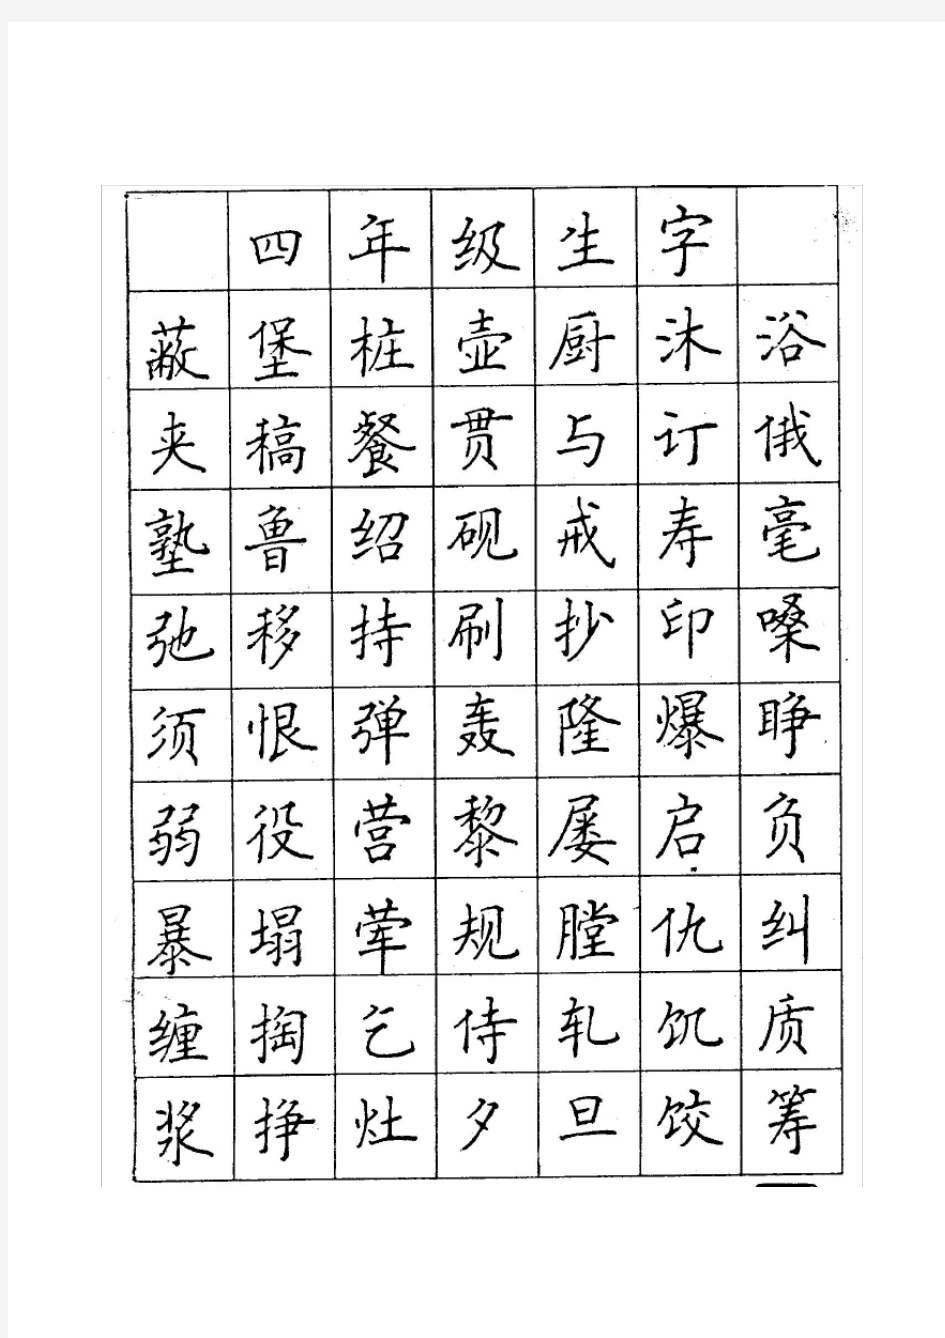 四年级生字
蔽堡桩壶厨沐浴
夹稿餐贯与订俄
塾鲁绍砚戒寿毫
弛移持刷抄印嗓
须恨弹轰隆爆睁
弱役营黎屡启负
暴塌荤规膛仇纠
缠掏乞侍轧饥质
浆挣灶夕旦饺筹